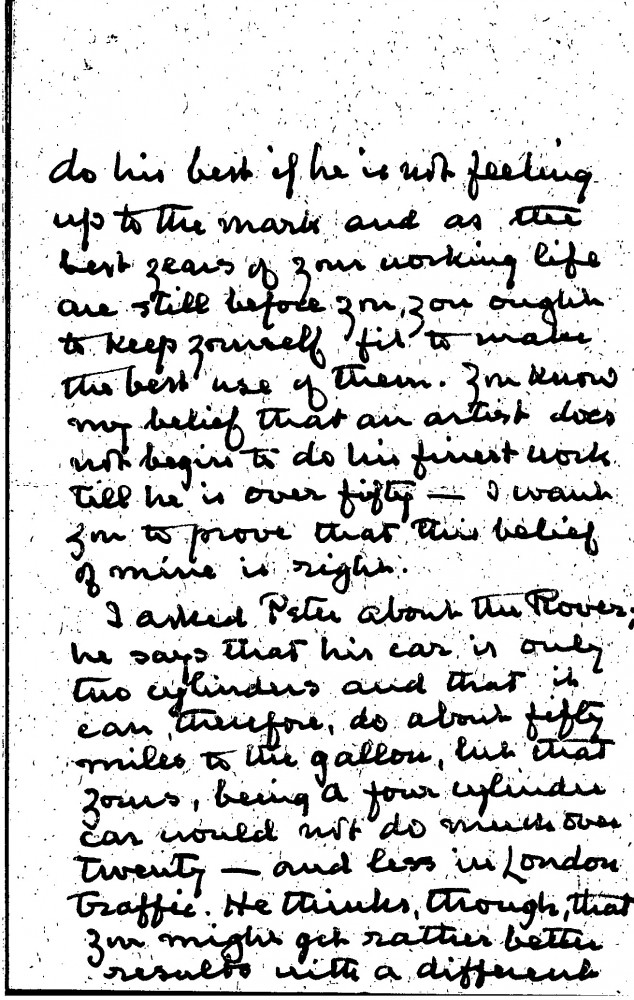 do his best if he is not feeling
up to the mark and as the
best years of your working life
are still before you, you ought
to keep yourself fit to make
the best use of them. You know
my belief that an artist does
not begin to do his finest work
till he is over fifty — I want
you to prove that this belief
of mine is right.
I asked Peter about the Rover;
he says that his car is only
two cylinders and that it
can, therefore, do about fifty
miles to the gallon, but that
yours, being a four cylinder
car would not do much over
twenty — and less in London
traffic. He thinks, though, that
you might get rather better
results with a different